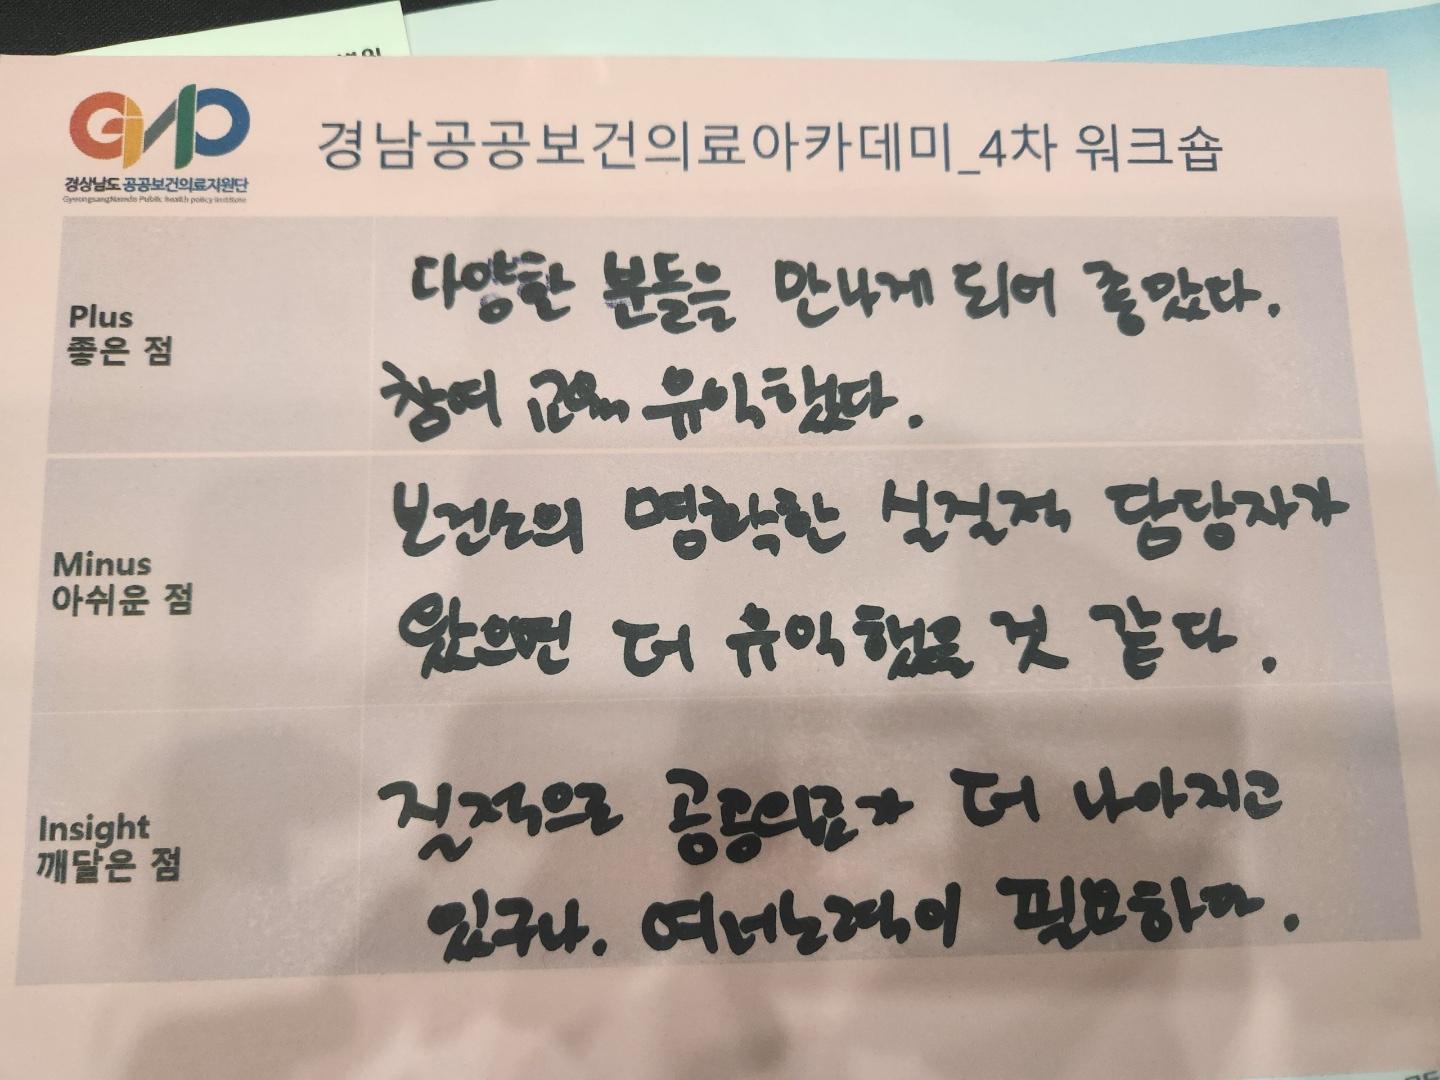 경상남도 공공보건의료지원단
GyeongsangNamdo Public health policy Institute
경남공공보건의료아카데미_4차 워크숍
Plus
좋은 점
다양한 분들을 만나게 되어 좋았다.
참여 교육 유익했다.
Minus
아쉬운 점
보건소의 명확한 실질적 담당자가
왔으면 더 유익했을 것 같다.
Insight
깨달은 점
질적으로 공공의료가 더 나아지고
있구나. 노력이 필요하다.